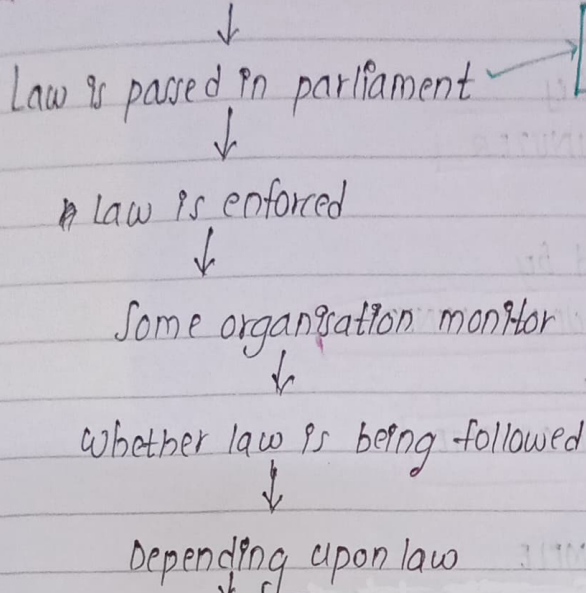 Law is passed in parliament
law is enforced
Some organisation monitor
whether law is being followed
Depending upon law